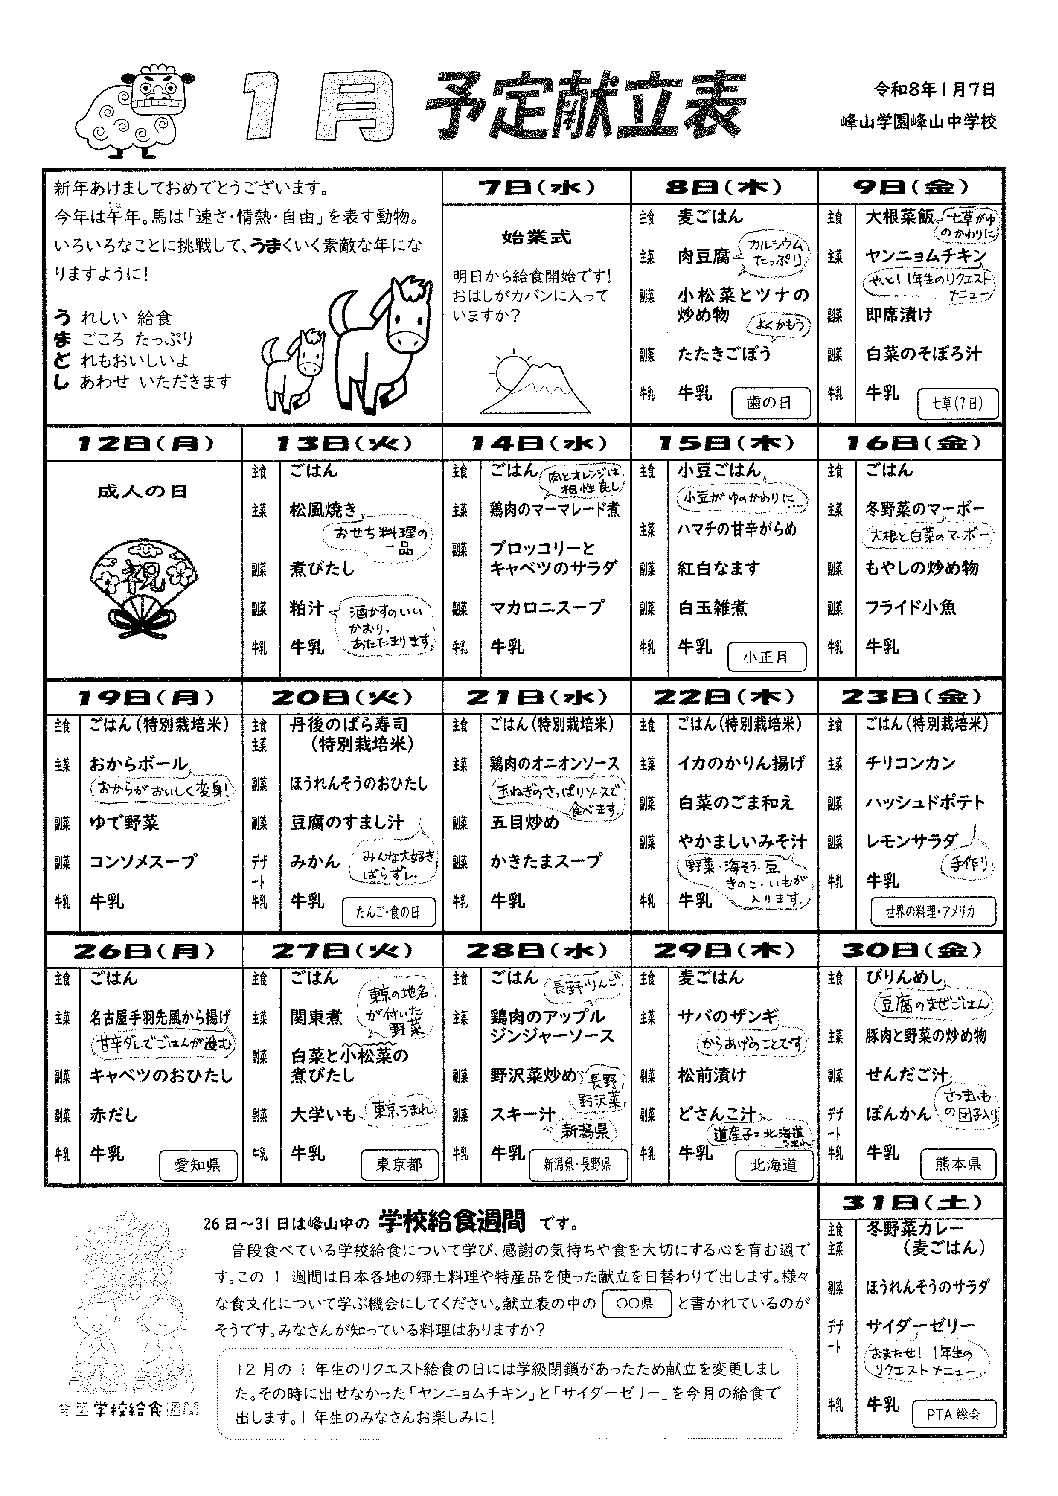 1月 予定献立表
令和8年1月7日
峰山学園峰山中学校
新年あけましておめでとうございます。
今年は午年。馬は「速さ・情熱・自由」を表す動物。
いろいろなことに挑戦して、うまくいく素敵な年にな
りますように！
う れしい 給食
ま ごころ たっぷり
ど れもおいしいよ
し あわせ いただきます
7日(水)
始業式
明日から給食開始です！
おはしがカバンに入って
いますか？
8日(木)
主食 麦ごはん
主菜 肉豆腐
カルシウム
たっぷり
副菜 小松菜とツナの
炒め物
よくかもう
副菜 たたきごぼう
牛乳 牛乳
歯の日
9日(金)
主食 大根菜飯
七草がゆ
のかわりに
主菜 ヤンニョムチキン
やっと！1年生のリクエスト
メニュー
副菜 即席漬け
副菜 白菜のそぼろ汁
牛乳 牛乳
七草(7日)
12日(月)
成人の日
祝
13日(火)
主食 ごはん
主菜 松風焼き
おせち料理の
一品
副菜 煮びたし
副菜 粕汁
酒かすのいい
かおり。
あたたまります。
牛乳 牛乳
14日(水)
主食 ごはん
肉とオレンジは
相性良し
主菜 鶏肉のマーマレード煮
副菜 ブロッコリーと
キャベツのサラダ
副菜 マカロニスープ
牛乳 牛乳
15日(木)
主食 小豆ごはん
小豆がゆのかわりに
主菜 ハマチの甘辛がらめ
副菜 紅白なます
副菜 白玉雑煮
牛乳 牛乳
小正月
16日(金)
主食 ごはん
主菜 冬野菜のマーボー
大根と白菜のマーボー
副菜 もやしの炒め物
副菜 フライド小魚
牛乳 牛乳
19日(月)
主食 ごはん(特別栽培米)
主菜 おからボール
おからがおいしく変身！
副菜 ゆで野菜
副菜 コンソメスープ
牛乳 牛乳
20日(火)
主食 丹後のばら寿司
主菜 (特別栽培米)
副菜 ほうれんそうのおひたし
副菜 豆腐のすまし汁
デザート みかん
みんな大好き
ばらずし。
牛乳 牛乳
たんご・食の日
21日(水)
主食 ごはん(特別栽培米)
主菜 鶏肉のオニオンソース
玉ねぎのさっぱりソースで
食べます。
副菜 五目炒め
副菜 かきたまスープ
牛乳 牛乳
22日(木)
主食 ごはん(特別栽培米)
主菜 イカのかりん揚げ
副菜 白菜のごま和え
副菜 やかましいみそ汁
野菜・海そう・豆
きのこ・いもが
入ります。
牛乳 牛乳
23日(金)
主食 ごはん(特別栽培米)
主菜 チリコンカン
副菜 ハッシュドポテト
副菜 レモンサラダ
手作り
牛乳 牛乳
世界の料理・アメリカ
26日(月)
主食 ごはん
主菜 名古屋手羽先風から揚げ
甘辛ダレでごはんが進む
副菜 キャベツのおひたし
副菜 赤だし
牛乳 牛乳
愛知県
27日(火)
主食 ごはん
東京の地名
が付いた
野菜
主菜 関東煮
副菜 白菜と小松菜の
煮びたし
副菜 大学いも
東京うまれ
牛乳 牛乳
東京都
28日(水)
主食 ごはん
長野りんご
主菜 鶏肉のアップル
ジンジャーソース
副菜 野沢菜炒め
長野
野沢菜
副菜 スキー汁
新潟県
牛乳 牛乳
新潟県・長野県
29日(木)
主食 麦ごはん
主菜 サバのザンギ
からあげのことです
副菜 松前漬け
副菜 どさんこ汁
道産子＝北海道
牛乳 牛乳
北海道
30日(金)
主食 びりんめし
豆腐のまぜごはん
主菜 豚肉と野菜の炒め物
副菜 せんだご汁
さつまいも
の団子入り
デザート ぽんかん
牛乳 牛乳
熊本県
26日～31日は峰山中の 学校給食週間 です。
普段食べている学校給食について学び、感謝の気持ちや食を大切にする心を育む週で
す。この1週間は日本各地の郷土料理や特産品を使った献立を日替わりで出します。様々
な食文化について学ぶ機会にしてください。献立表の中の 〇〇県 と書かれているのが
そうです。みなさんが知っている料理はありますか？
12月の1年生のリクエスト給食の日には学級閉鎖があったため献立を変更しまし
た。その時に出せなかった「ヤンニョムチキン」と「サイダーゼリー」を今月の給食で
出します。1年生のみなさんお楽しみに！
学校給食週間
31日(土)
主食 冬野菜カレー
主菜 (麦ごはん)
副菜 ほうれんそうのサラダ
デザート サイダーゼリー
おまたせ！1年生の
リクエストメニュー。
牛乳 牛乳
PTA総会